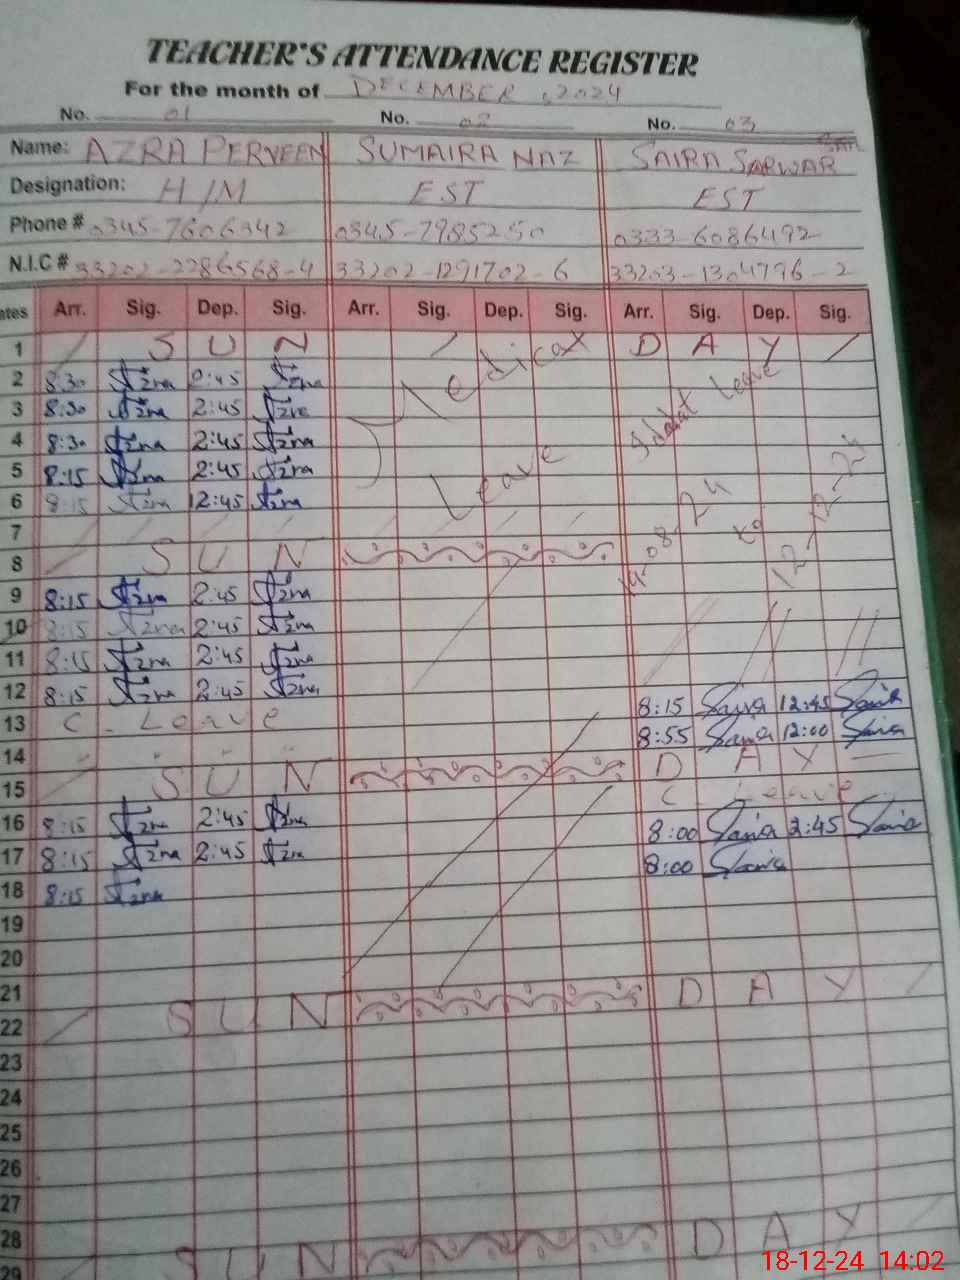 TEACHER'S ATTENDANCE REGISTER
For the month of DECEMBER, 2024
No. 01 No. 02 No. 03
Name: AZRA PERVEEN SUMAIRA NAZ SAIRA SARWAR
Designation: H/M EST EST
Phone # 0345-7606342 0345-7985250 0333-6086492
N.I.C # 33202-2286568-4 33202-1291702-6 33203-1304796-2
ates Arr. Sig. Dep. Sig. Arr. Sig. Dep. Sig. Arr. Sig. Dep. Sig.
1 S U N D A Y
2 8:30 Azra 2:45 Azra Medical
3 8:30 Azra 2:45 Azra Leave
4 8:30 Azra 2:45 Azra
5 8:15 Azra 2:45 Azra Leave
6 8:15 Azra 12:45 Azra 14-08-24 to 12-12-24
7
8 S U N
9 8:15 Azra 2:45 Azra
10 8:15 Azra 2:45 Azra
11 8:15 Azra 2:45 Azra
12 8:15 Azra 2:45 Azra
13 C. Leave 8:15 Saira 12:45 Saira
14 8:55 Saira 12:00 Saira
15 S U N D A Y
16 8:15 Azra 2:45 Azra C. Leave
17 8:15 Azra 2:45 Azra 8:00 Saira 2:45 Saira
18 8:15 Azra 8:00 Saira
19
20
21
22 S U N D A Y
23
24
25
26
27
28
29 S U N D A Y
18-12-24 14:02